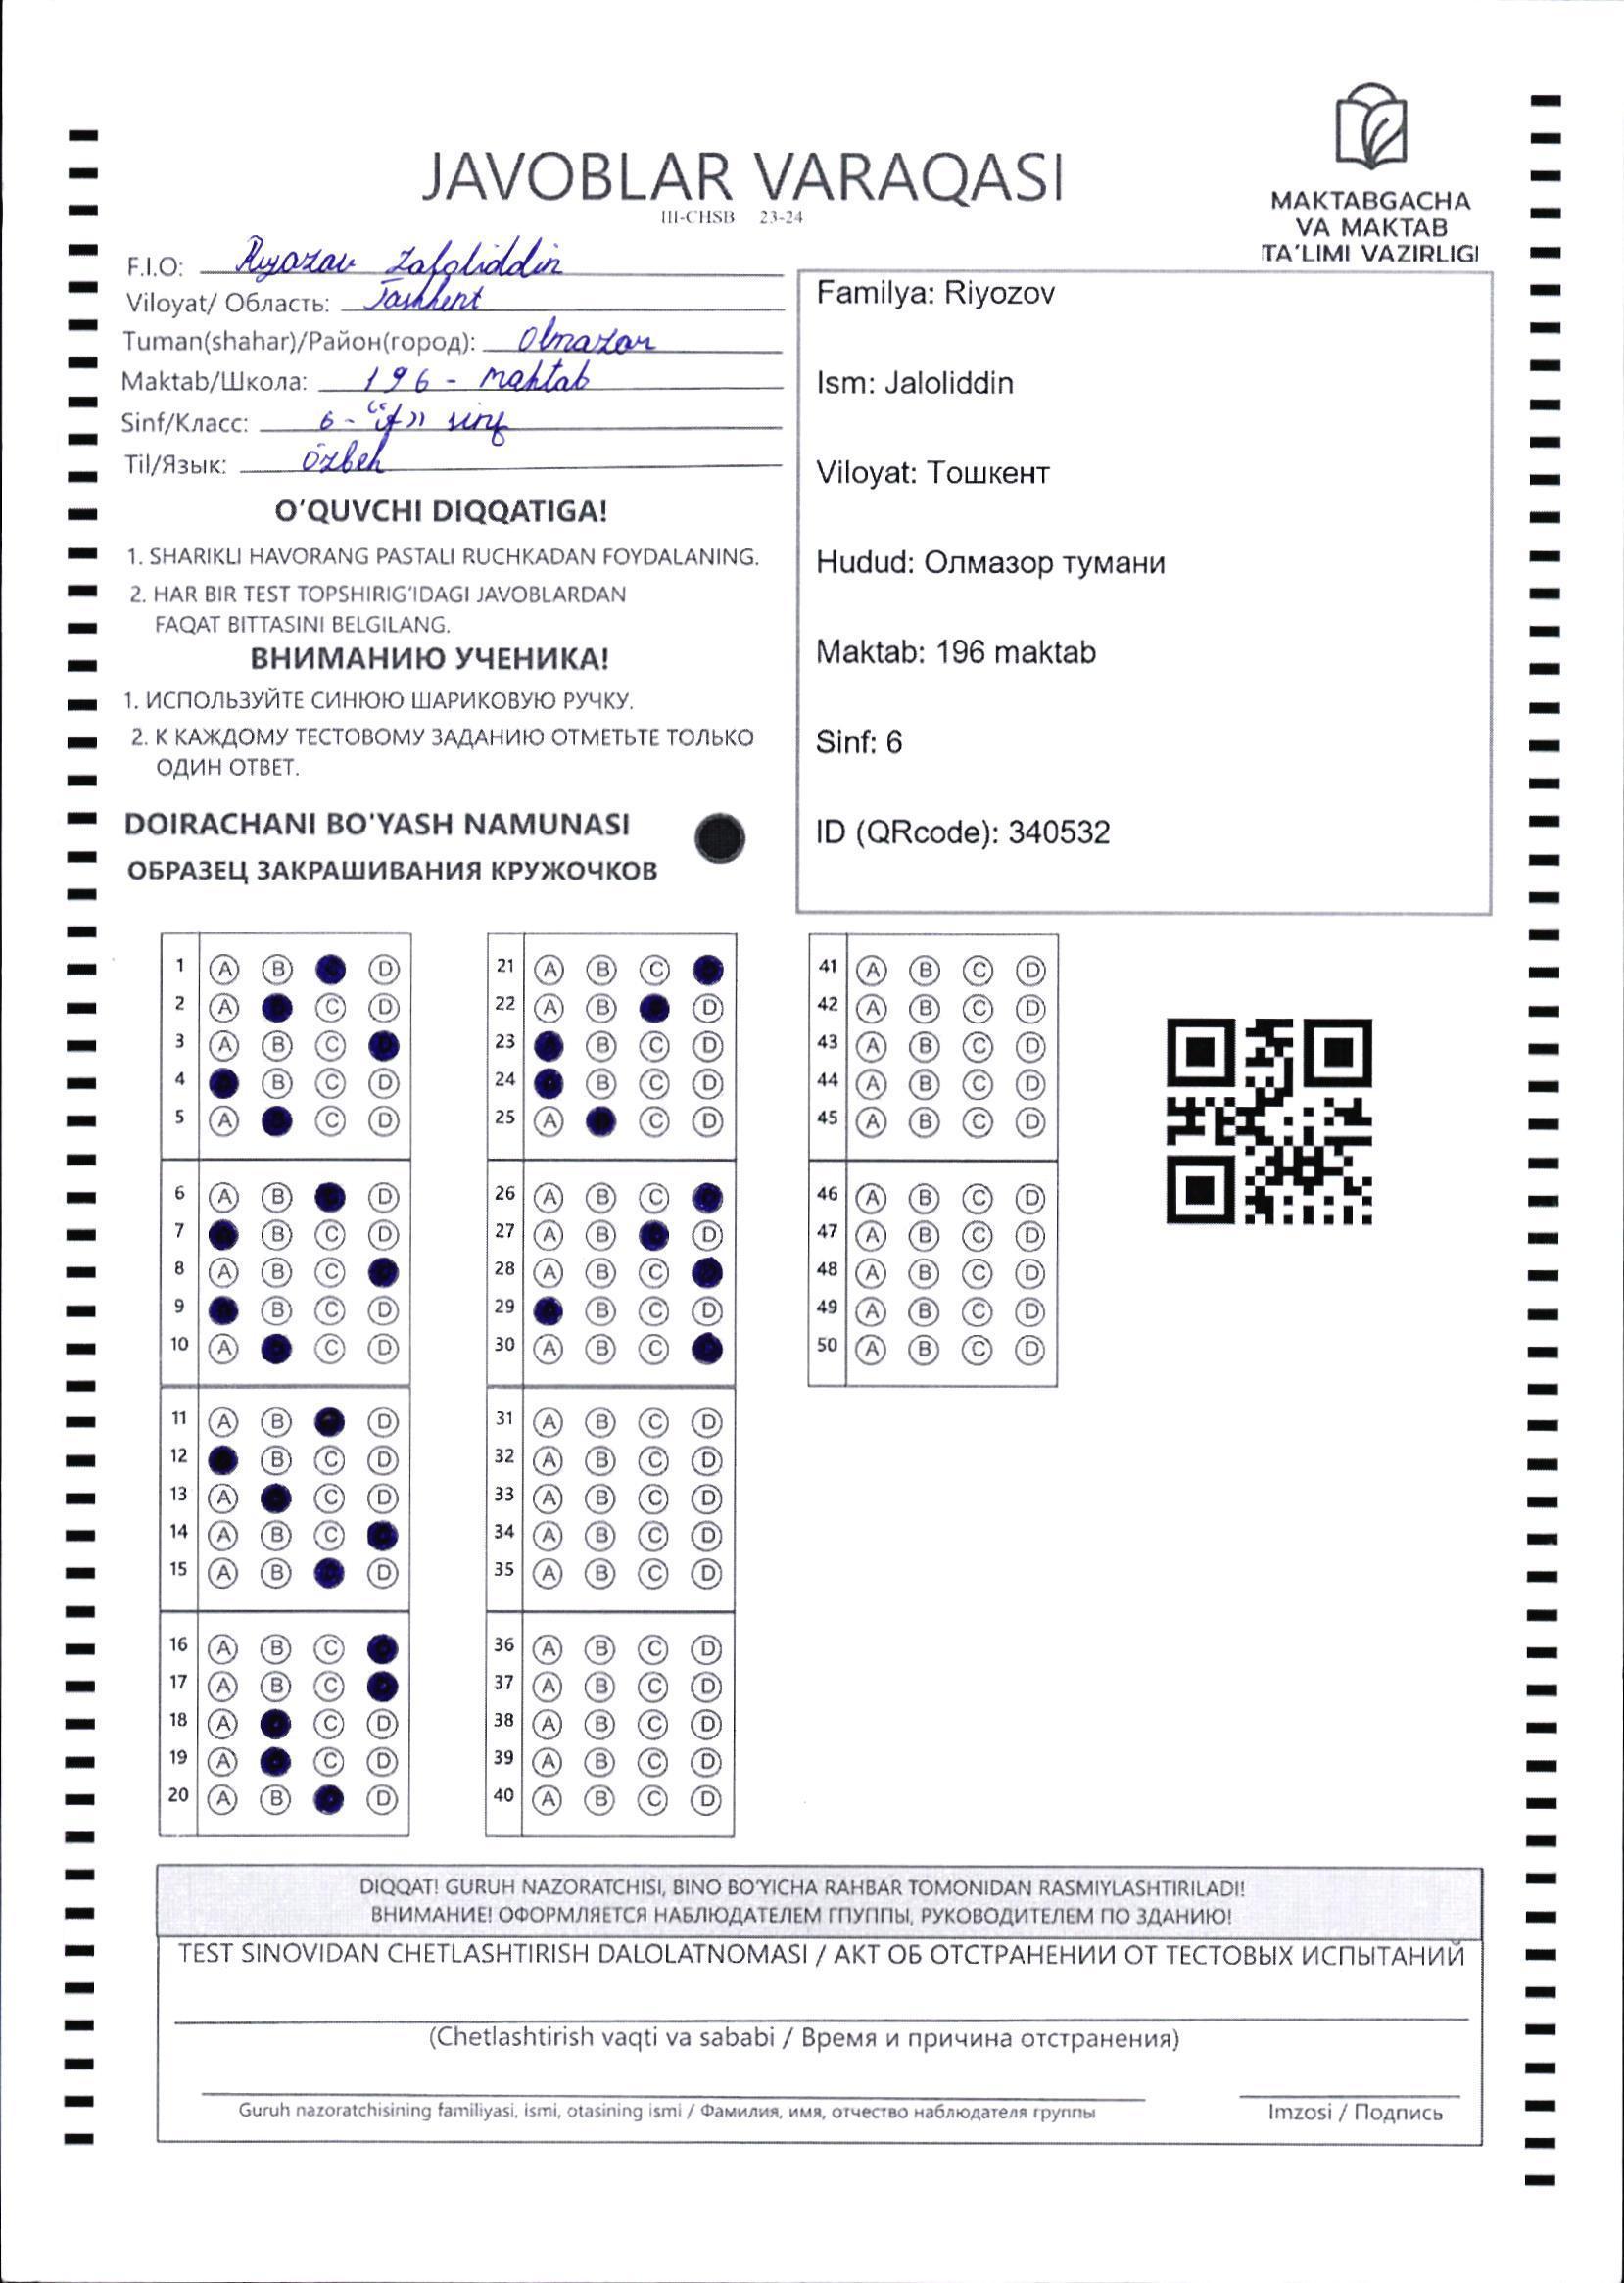 JAVOBLAR VARAQASI
III-CHSB 23-24
MAKTABGACHA
VA MAKTAB
TA'LIMI VAZIRLIGI
F.I.O: Riyozov Jaloliddin
Viloyat/ Область: Tashkent
Tuman(shahar)/Район(город): Olmazor
Maktab/Школа: 196 - maktab
Sinf/Класс: 6 - sinf
Til/Язык: Özbek
O'QUVCHI DIQQATIGA!
1. SHARIKLI HAVORANG PASTALI RUCHKADAN FOYDALANING.
2. HAR BIR TEST TOPSHIRIG'IDAGI JAVOBLARDAN
FAQAT BITTASINI BELGILANG.
ВНИМАНИЮ УЧЕНИКА!
1. ИСПОЛЬЗУЙТЕ СИНЮЮ ШАРИКОВУЮ РУЧКУ.
2. К КАЖДОМУ ТЕСТОВОМУ ЗАДАНИЮ ОТМЕТЬТЕ ТОЛЬКО
ОДИН ОТВЕТ.
DOIRACHANI BO'YASH NAMUNASI
ОБРАЗЕЦ ЗАКРАШИВАНИЯ КРУЖОЧКОВ
Familya: Riyozov
Ism: Jaloliddin
Viloyat: Тошкент
Hudud: Олмазор тумани
Maktab: 196 maktab
Sinf: 6
ID (QRcode): 340532
1 A B D
2 A C D
3 A B C
4 B C D
5 A C D
6 A B D
7 B C D
8 A B C
9 B C D
10 A C D
11 A B D
12 B C D
13 A C D
14 A B C
15 A B D
16 A B C
17 A B C
18 A C D
19 A C D
20 A B D
21 A B C
22 A B D
23 B C D
24 B C D
25 A C D
26 A B C
27 A B D
28 A B C
29 B C D
30 A B C
31 A B C D
32 A B C D
33 A B C D
34 A B C D
35 A B C D
36 A B C D
37 A B C D
38 A B C D
39 A B C D
40 A B C D
41 A B C D
42 A B C D
43 A B C D
44 A B C D
45 A B C D
46 A B C D
47 A B C D
48 A B C D
49 A B C D
50 A B C D
DIQQAT! GURUH NAZORATCHISI, BINO BO'YICHA RAHBAR TOMONIDAN RASMIYLASHTIRILADI!
ВНИМАНИЕ! ОФОРМЛЯЕТСЯ НАБЛЮДАТЕЛЕМ ГПУППЫ, РУКОВОДИТЕЛЕМ ПО ЗДАНИЮ!
TEST SINOVIDAN CHETLASHTIRISH DALOLATNOMASI / АКТ ОБ ОТСТРАНЕНИИ ОТ ТЕСТОВЫХ ИСПЫТАНИЙ
(Chetlashtirish vaqti va sababi / Время и причина отстранения)
Guruh nazoratchisining familiyasi, ismi, otasining ismi / Фамилия, имя, отчество наблюдателя группы
Imzosi / Подпись